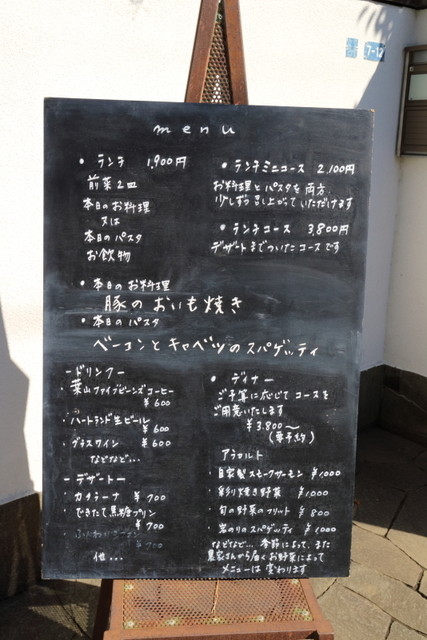 7-12
menu
• ランチ 1,900円
前菜2皿
本日のお料理
又は
本日のパスタ
お飲物
• ランチミニコース 2,100円
お料理とパスタを両方
少しずつ召し上がっていただけます
• ランチコース 3,800円
デザートまでついたコースです
• 本日のお料理
豚のおいも焼き
• 本日のパスタ
ベーコンとキャベツのスパゲッティ
ードリンクー
• 葉山ファイブビーンズコーヒー
¥600
• ハートランド生ビール
¥600
• グラスワイン ¥600
などなど…
ーデザートー
• カタラーナ ¥700
• できたて黒糖プリン
¥700
¥700
他…
• ディナー
ご予算に応じてコースを
ご用意いたします
¥3,800〜
(要予約)
アラカルト
• 自家製スモークサーモン ¥1,000
• 彩り焼き野菜 ¥1,000
• 旬の野菜のフリット ¥800
• 岩のりのスパゲッティ ¥1,000
などなど… 季節によって、また
農家さんから届くお野菜によって
メニューは変わります